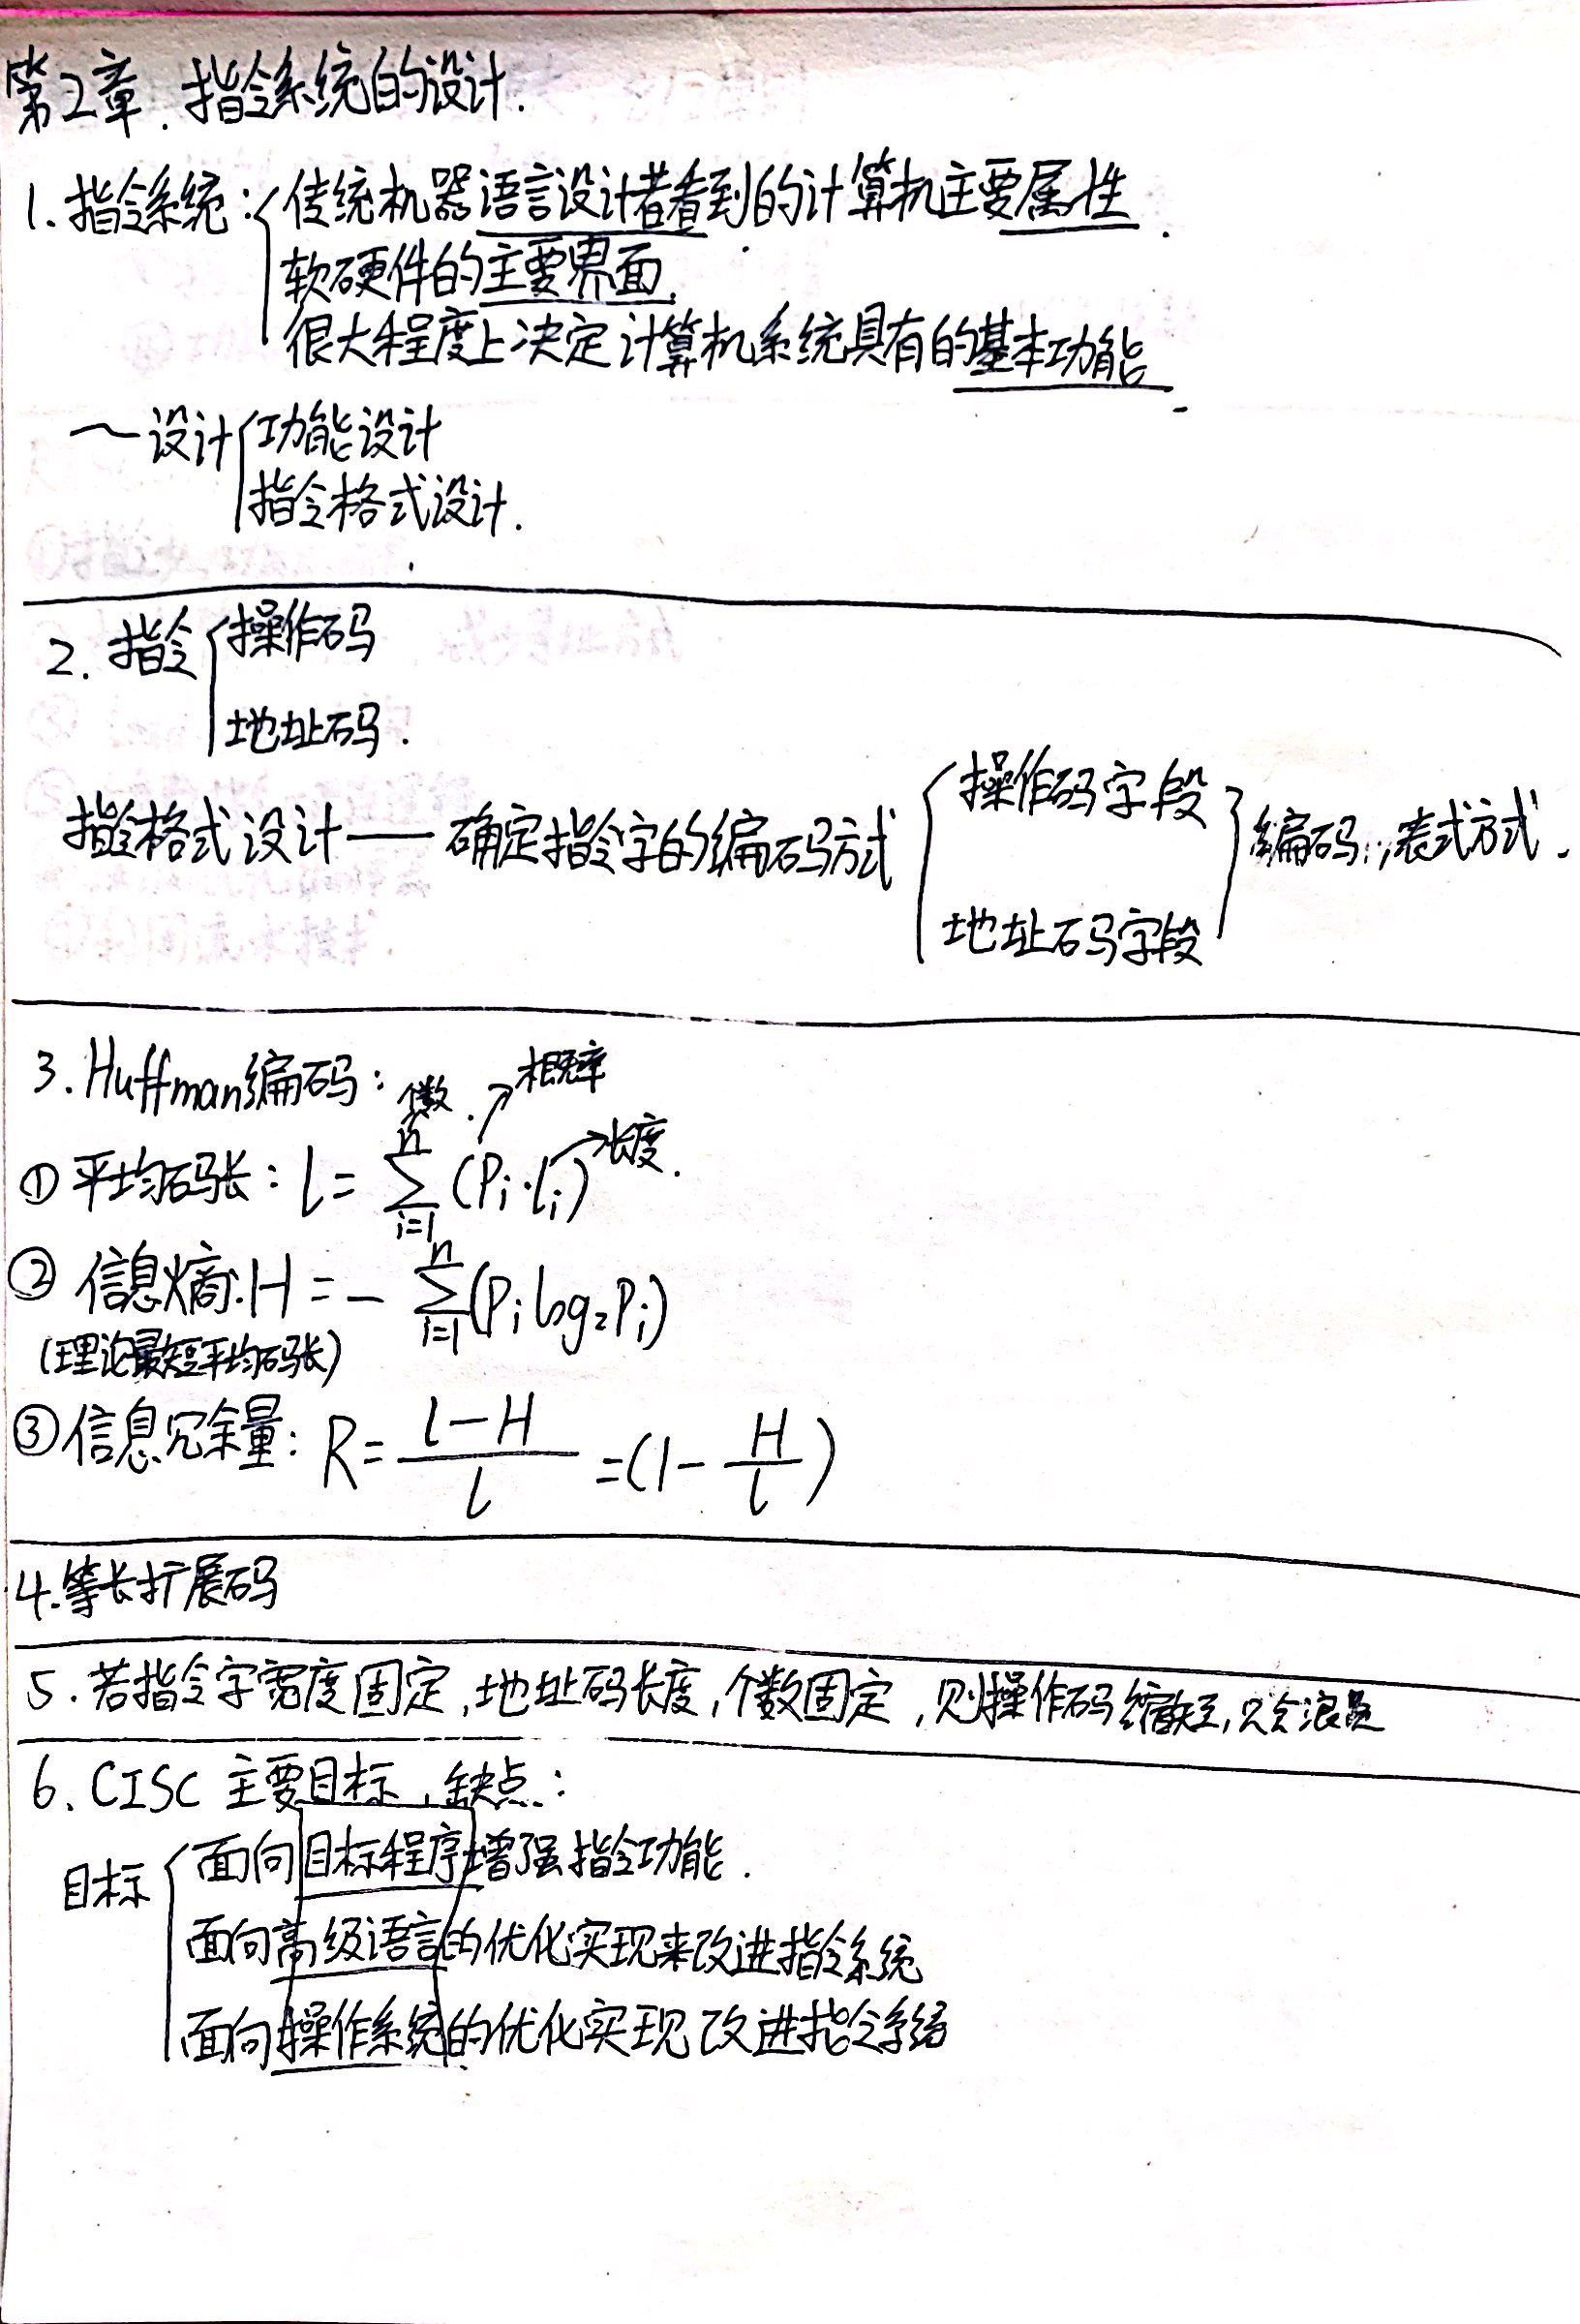 第2章. 指令系统的设计.
1. 指令系统: { 传统机器语言设计者看到的计算机主要属性.
软硬件的主要界面.
很大程度上决定计算机系统具有的基本功能.
～设计 { 功能设计
指令格式设计.
2. 指令 { 操作码
地址码.
指令格式设计—— 确定指令字的编码方式 { 操作码字段 地址码字段 } 编码, 表式方式.
3. Huffman编码:
① 平均码长: l = ∑_{i=1}^{n} (Pi·li) 个数. ↗概率 →长度.
② 信息熵: H = - ∑_{i=1}^{n} (Pi log₂Pi)
(理论最短平均码长)
③ 信息冗余量: R = (l-H)/l = (1 - H/l)
4. 等长扩展码
5. 若指令字宽度固定, 地址码长度, 个数固定, 则操作码缩短, 只会浪费
6. CISC 主要目标, 缺点:
目标 { 面向目标程序增强指令功能.
面向高级语言的优化实现来改进指令系统
面向操作系统的优化实现改进指令系统